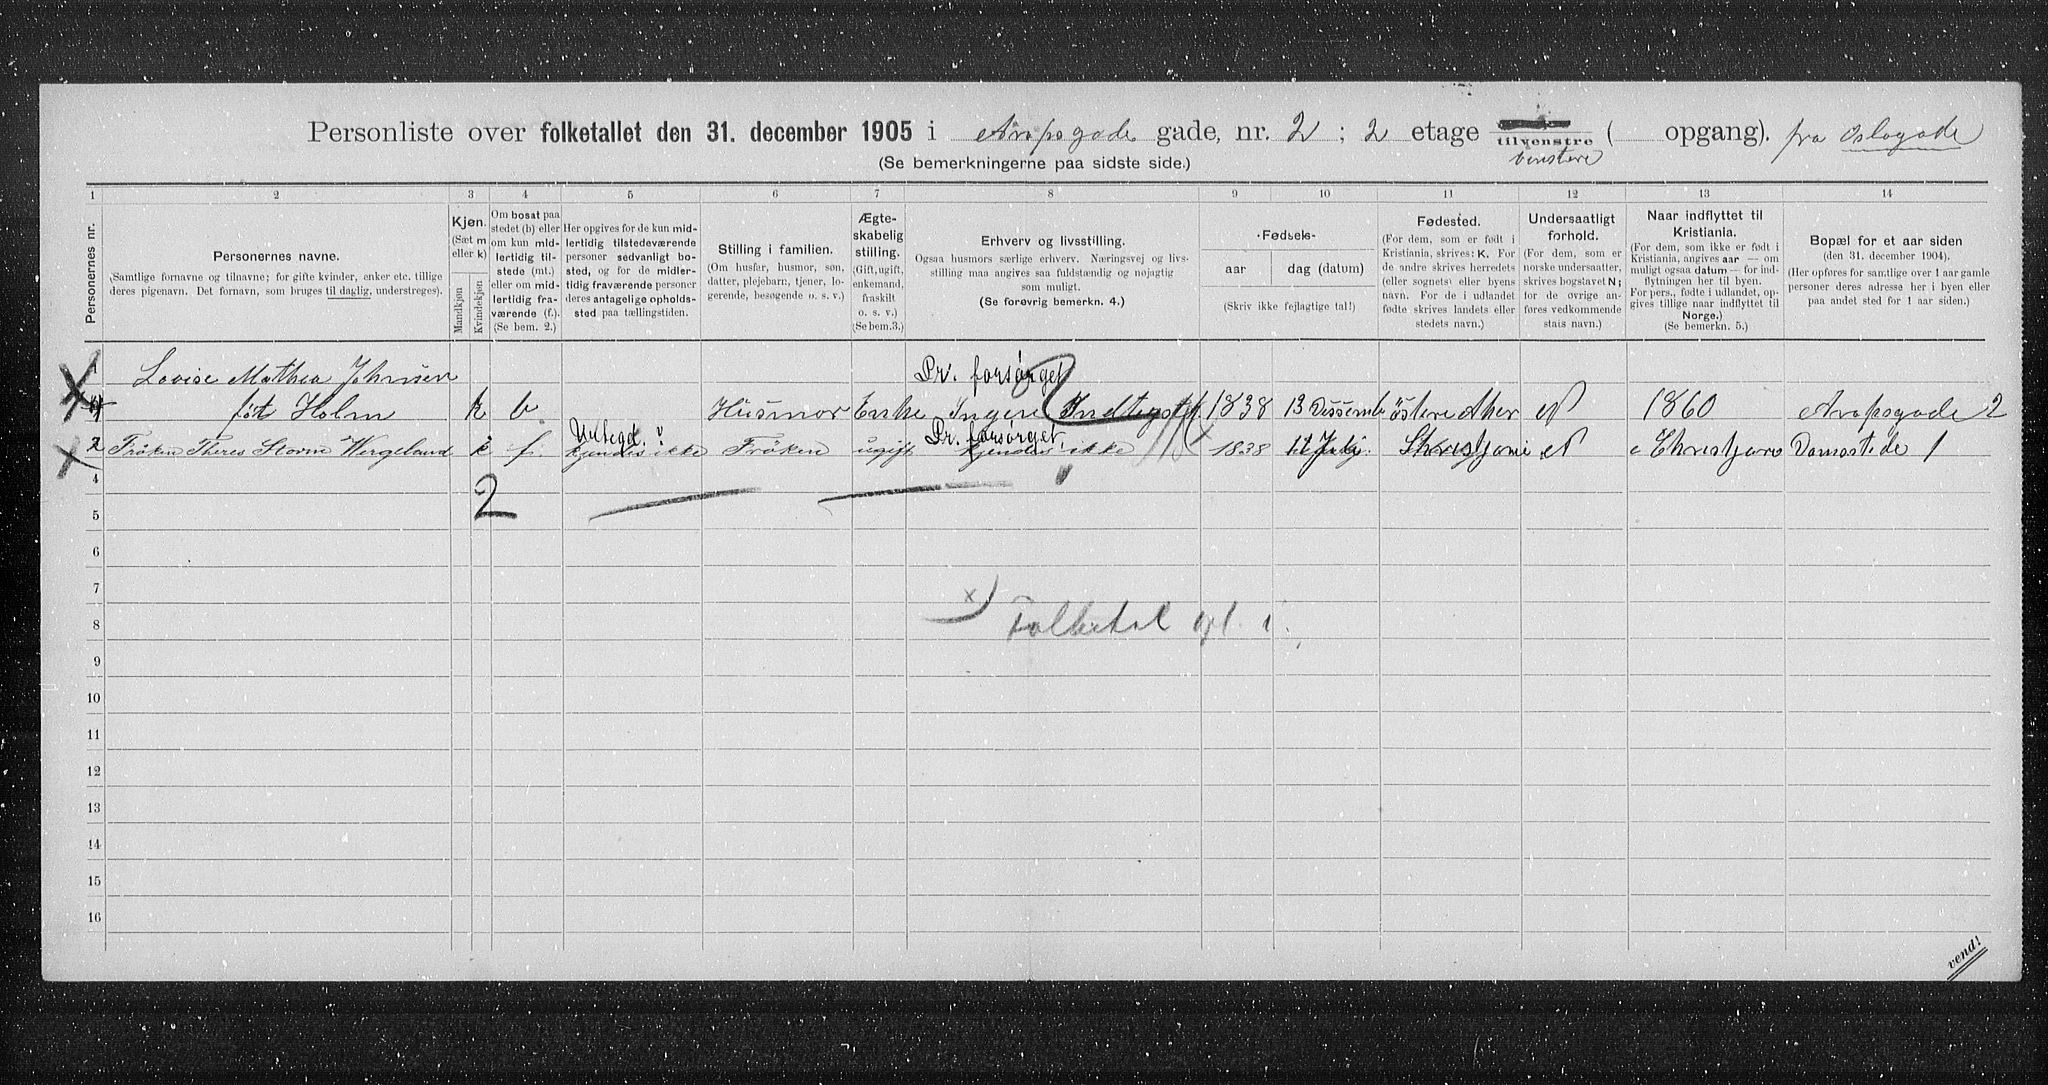 Personliste over folketallet den 31. december 1905 i Arupsgade gade, nr. 2 ; 2 etage tilvenstre ( opgang). fra Oslogade
venstre
(Se bemerkningerne paa sidste side.)
1 2 3 4 5 6 7 8 9 10 11 12 13 14
Personernes nr.
Personernes navne.
(Samtlige fornavne og tilnavne; for gifte kvinder, enker etc. tillige
deres pigenavn. Det fornavn, som bruges til daglig, understreges).
Kjøn.
(Sæt m
eller k)
Mandkjøn
Kvindekjøn
Om bosat paa
stedet (b) eller
om kun mid-
lertidig til-
stede (mt.)
eller om mid-
lertidig fra-
værende (f.).
(Se bem. 2.)
Her opgives for de kun mid-
lertidig tilstedeværende
personer sedvanlig bo-
sted, og for de midler-
tidig fraværende personer
deres antagelige opholds-
sted paa tællingstiden.
Stilling i familien.
(Om husfar, husmor, søn,
datter, plejebarn, tjener, lo-
gerende, besøgende o. s. v.)
Ægte-
skabelig
stilling.
(Gift, ugift,
enkemand,
fraskilt
o. s. v.)
(Se bem.3.)
Erhverv og livsstilling.
Ogsaa husmors særlige erhverv. Næringsvej og livs-
stilling maa angives saa fuldstændig og nøjagtig
som muligt.
(Se forøvrig bemerkn. 4.)
Fødsels-
aar
dag (datum)
(Skriv ikke fejlagtige tal!)
Fødested.
(For dem, som er født i
Kristiania, skrives: K. For
de andre skrives herredets
(eller sognets) eller byens
navn. For de i udlandet
fødte skrives landets eller
stedets navn.)
Undersaatligt
forhold.
(For dem, som er
norske undersaatter,
skrives bogstavet N;
for de øvrige an-
føres vedkommende
stats navn.)
Naar indflyttet til
Kristiania.
(For dem, som ikke er født i
Kristiania, angives aar — om
muligt ogsaa datum — for ind-
flytningen her til byen.
For pers., fødte i udlandet, op-
gives tillige naar indflyttet til
Norge.)
(Se bemerkn. 5.)
Bopæl for et aar siden
(den 31. december 1904).
(Her opføres for samtlige over 1 aar gamle
personer deres adresse her i byen eller
paa andet sted for 1 aar siden.)
1 Lovise Mathea Johnsen Pr. forsørget
føt Holm k b. Husmor Enke Ingen Indtægt 1838 13 Dessemb östere Aker N 1860 Arupsgade 2
Ubekjendt Pr. forsørget
2 Frøken Theres Storm Wergeland k f. kjendes ikke Fröken ugift kjendes ikke 1838 Juli Christjania N Christjania Damstede 1
4
2
5
6
7
x) Folketal
8
9
10
11
12
13
14
15
16
vend!